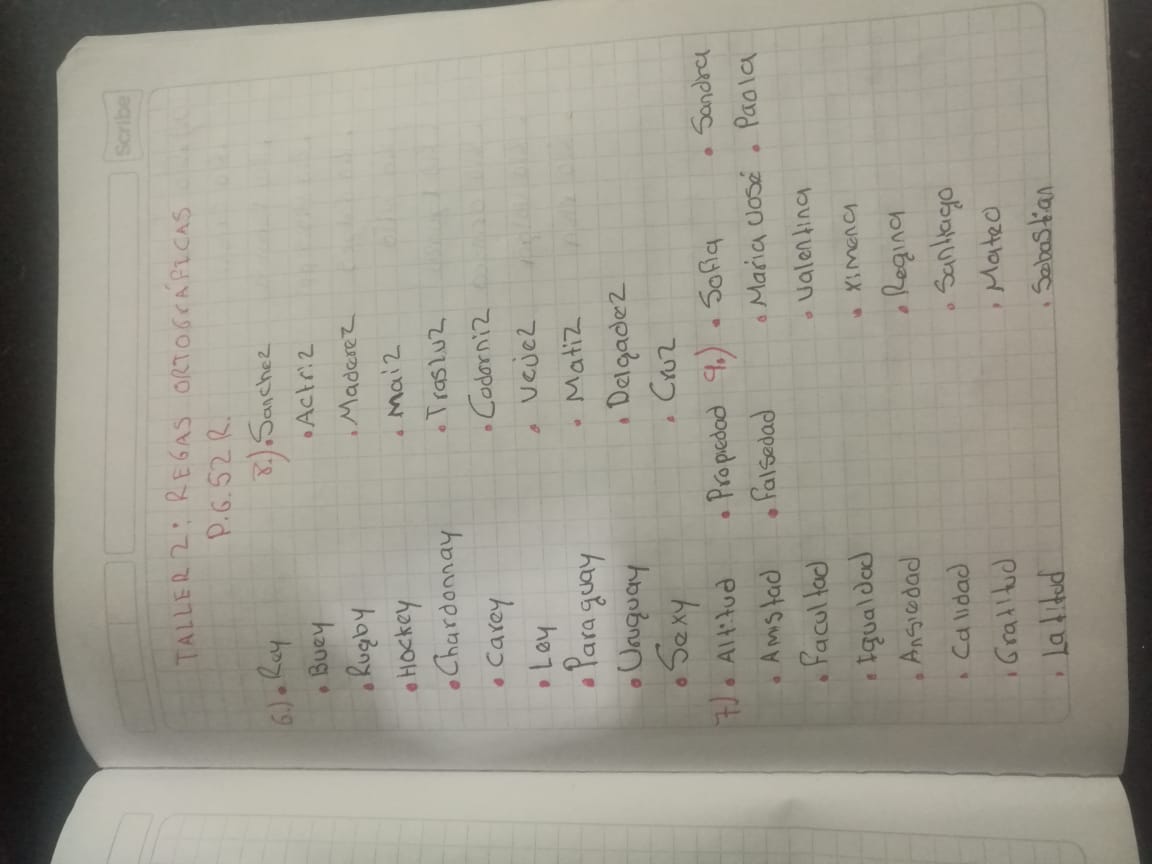 Scribe
TALLER 2: REGAS ORTOGRÁFICAS
P.G.52 R.
6.) • Rey
• Buey
• Rugby
• Hockey
• Chardonnay
• Carey
• Ley
• Paraguay
• Uruguay
• Sexy
7.) • Altitud
• Amstad
• Facultad
• Igualdad
• Ansiedad
• Calidad
• Gratitud
• Latitud
• Propiedad
• Falsedad
8.) • Sanchez
• Actriz
• Maderez
• Maiz
• Trasluz
• Codorniz
• Vejez
• Matiz
• Delgadez
• Cruz
9.) • Sofia
• Maria José
• Valentina
• Ximena
• Regina
• Santiago
• Mateo
• Sebastian
• Sandra
• Paola